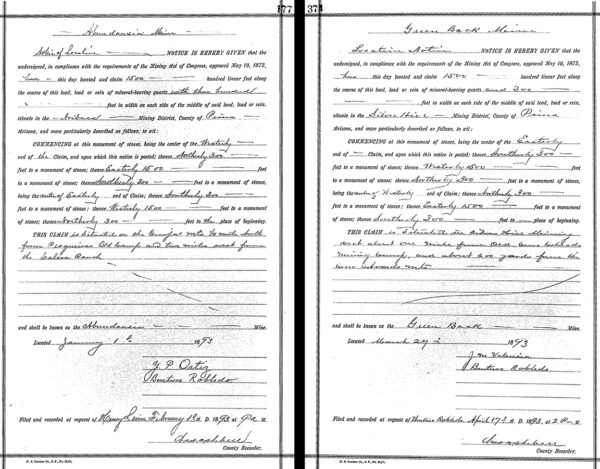 177
Abundansia Mine
Notice of Location NOTICE IS HEREBY GIVEN that the
undersigned, in compliance with the requirements of the Mining Act of Congress, approved May 10, 1872,
have this day located and claim 1500 hundred linear feet along
the course of this lead, lode or vein of mineral-bearing quartz with three hundred
feet in width on each side of the middle of said lead, lode or vein,
situate in the Mining District, County of Pima
Arizona, and more particularly described as follows, to wit:
COMMENCING at monument of stones, being the center of the Westerly
end of the Claim, and upon which this notice is posted; thence Northerly 300
feet to a monument of stones; thence Easterly 1500 feet
to a monument of stones; thence Southerly 300 feet to a monument of stones,
being the centre of Easterly end of Claim; thence Southerly 300
feet to a monument of stones; thence Westerly 1500 feet to a monument
of stones; thence Northerly 300 feet to the place of beginning.
THIS CLAIM is situated on the mts ½ mile
from Old Camp and two miles west from
the Ranch
and shall be known as the Abundansia Mine.
Located January 1st 1893
Y P Ortiz
Bentura Robledo
Filed and recorded at request of Henry Levin February 1st A. D. 1893 at 9 A M.
County Recorder.
374
Green Back Mine
Location Notice NOTICE IS HEREBY GIVEN that the
undersigned, in compliance with the requirements of the Mining Act of Congress, approved May 10, 1872,
have this day located and claim 1500 hundred linear feet along
the course of this lead, lode or vein of mineral-bearing quartz and 300
feet in width on each side of the middle of said lead, lode or vein,
situate in the Silver Hill Mining District, County of Pima
Arizona, and more particularly described as follows, to wit:
COMMENCING at monument of stones, being the center of the Easterly
end of Claim, and upon which this notice is posted; thence Southerly 300
feet to a monument of stones; thence Westerly 1500 feet
to a monument of stones; thence Northerly 300 feet to a monument of stones,
being the centre of Westerly end of Claim; thence Northerly 300
feet to a monument of stones; thence Easterly 1500 feet to a monument
of stones; thence Southerly 300 feet to place of beginning.
THIS CLAIM is situated in Silver Hill Mining
about one mile from
mining camp, and about 600 yards from the
mts
and shall be known as the Green Back Mine.
Located March 27 1893
J M Valencia
Bentura Robledo
Filed and recorded at request of Bentura Robledo April 17th A. D. 1893, at 2 P M.
County Recorder.